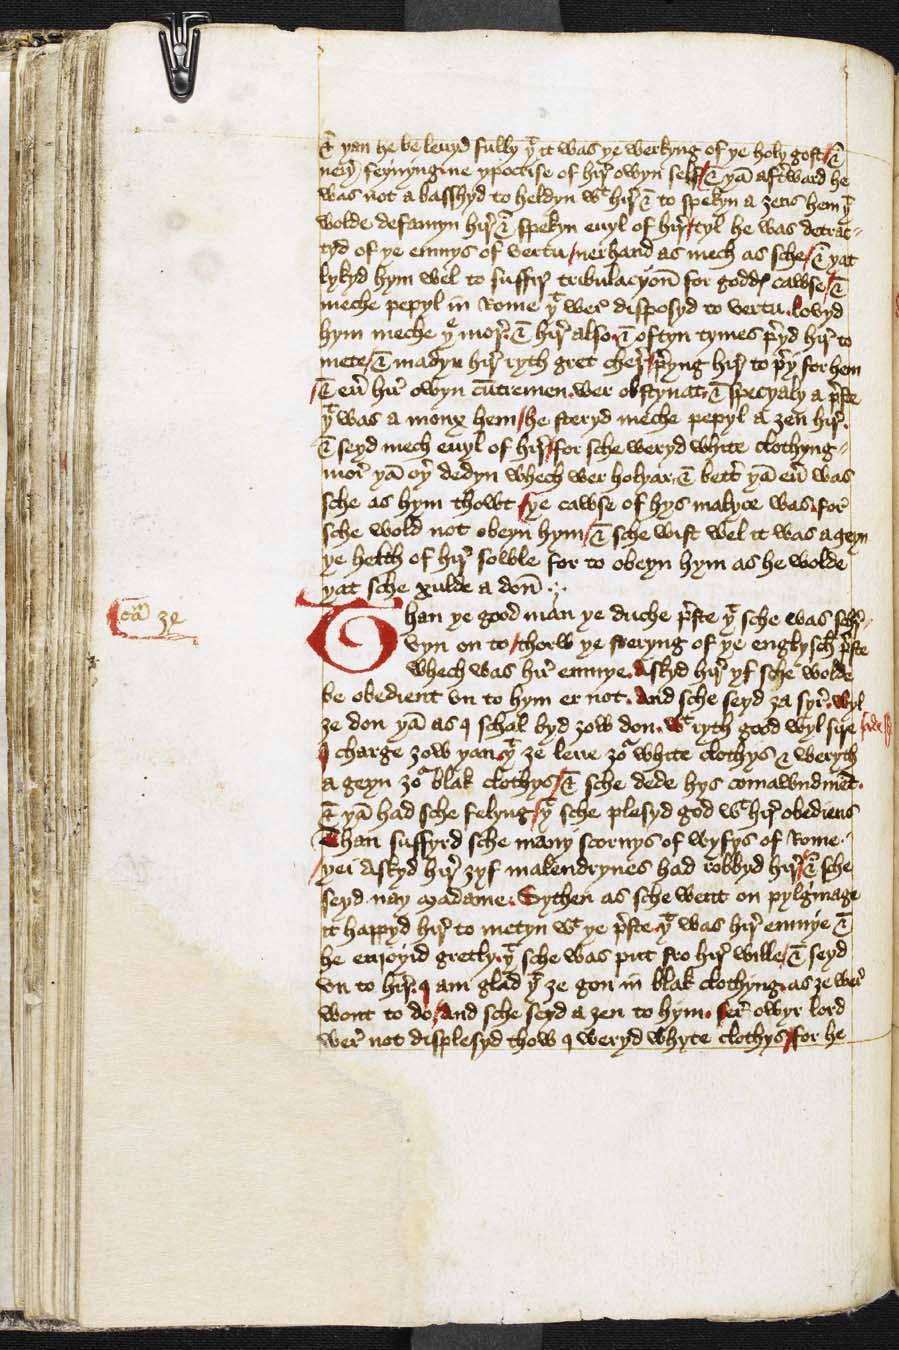 & yan he be leuyd fully yt it was ye werkyng of ye holy gost / &
neyr feynyng ne ypocrise of hir owyn self / & yan aftward he
was not a basshyd to heldyn wt hir & to spekyn a zens hem yt
wolde defamyn hir & spekyn euyl of hir / tyl he was detrac-
tyd of ye enmys of vertu / nerhand as mech as sche / & yat
lykyd hym wel to suffyr tribulacyon for godds cawse / &
meche pepyl in Rome yt wer disposyd to vertu . lovyd
hym meche ye mor . & hir also . & oftyn tymes preyd hir to
mete / & madyn hir ryth gret cher / preyng hir to prey for hem
/ & euyr hir owyn cuntremen . wer obstynat . & specyaly a preste
yt was a mong hem / he steryd meche pepyl a zen hir .
& seyd mech euyl of hir / for sche weryd white clothyng -
mor yan oyr dedyn whech wer holyar . & bettr yan euyr was
sche as hym thowt / ye cawse of hys malyce was . for
sche wold not obeyn hym / & sche wist wel it was ageyn
ye helth of hir sowle for to obeyn hym as he wolde
yat sche xulde a don .
Cam ze
Than ye good man ye duche preste yt sche was schre-
vyn on to / thorw ye steryng of ye englysch preste
whech was hir enmye . askyd hir yf sche wolde
be obedient vn to hym er not . And sche seyd za syr . wyl
ze don yan as I schal byd zow don . wt ryth good wyl sire
I charge zow yan yt ze leue zor white clothys & weryth
a geyn zor blak clothys / & sche dede hys comawndment .
& yan had sche felyng / yt sche plesyd god wt hir obediens
Than suffyrd sche many scornys of wyfys of Rome .
/ yei askyd hir zyf malendrynes had robbyd hir / & sche
seyd nay Madame . Sythen as sche went on pylgrimage
it happyd hir to metyn wt ye preste . yt was hir enmye &
he enjoyid gretly . yt sche was put fro hir wille / & seyd
vn to hir . I am glad yt ze gon in blak clothyng . as ze wer
wont to do / And sche seyd a zen to hym . ser owyr lord
wer not displesyd thow I weryd whyte clothys / for he